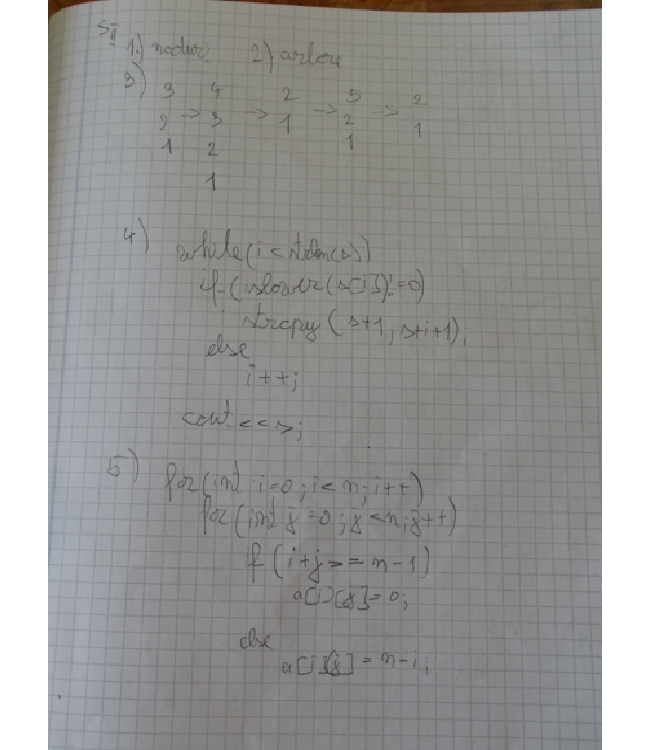 SII
1.) noduri 2) arbori
3) 3 4 2 5 2
2 → 3 → 1 → 2 → 1
1 2 1
1
4) while(i<strlen(s))
if(islower(s[i])!=0)
strcpy(s+1,s+i+1);
else
i++;
cout<<s;
5) for(int i=0;i<n;i++)
for(int j=0;j<n;j++)
if(i+j>=n-1)
a[i][j]=0;
else
a[i][j]=n-i;